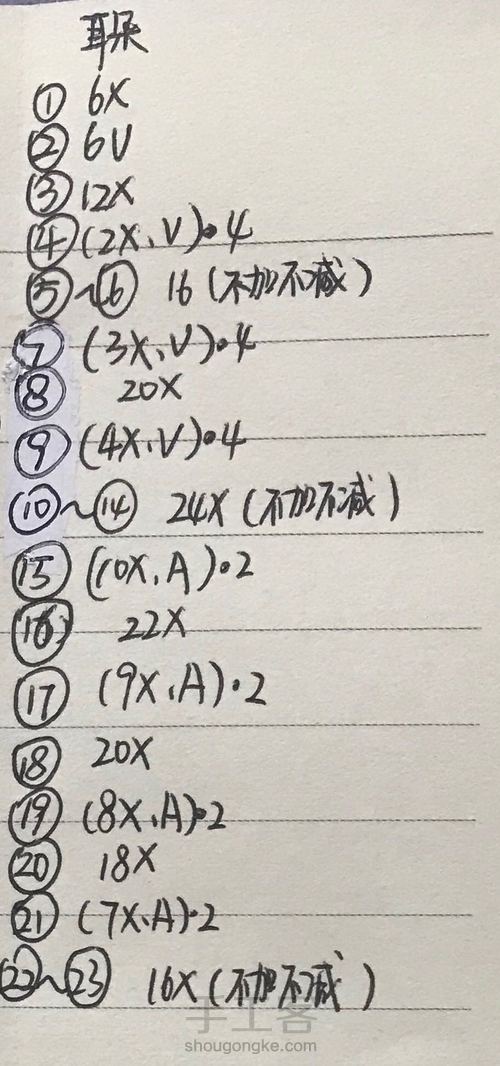 耳朵
① 6X
② 6V
③ 12X
④ (2X、V)•4
⑤~⑥ 16(不加不减)
⑦ (3X、V)•4
⑧ 20X
⑨ (4X、V)•4
⑩~⑭ 24X(不加不减)
⑮ (10X、A)•2
⑯ 22X
⑰ (9X、A)•2
⑱ 20X
⑲ (8X、A)•2
⑳ 18X
㉑ (7X、A)•2
㉒~㉓ 16X(不加不减)
手工客
shougongke.com